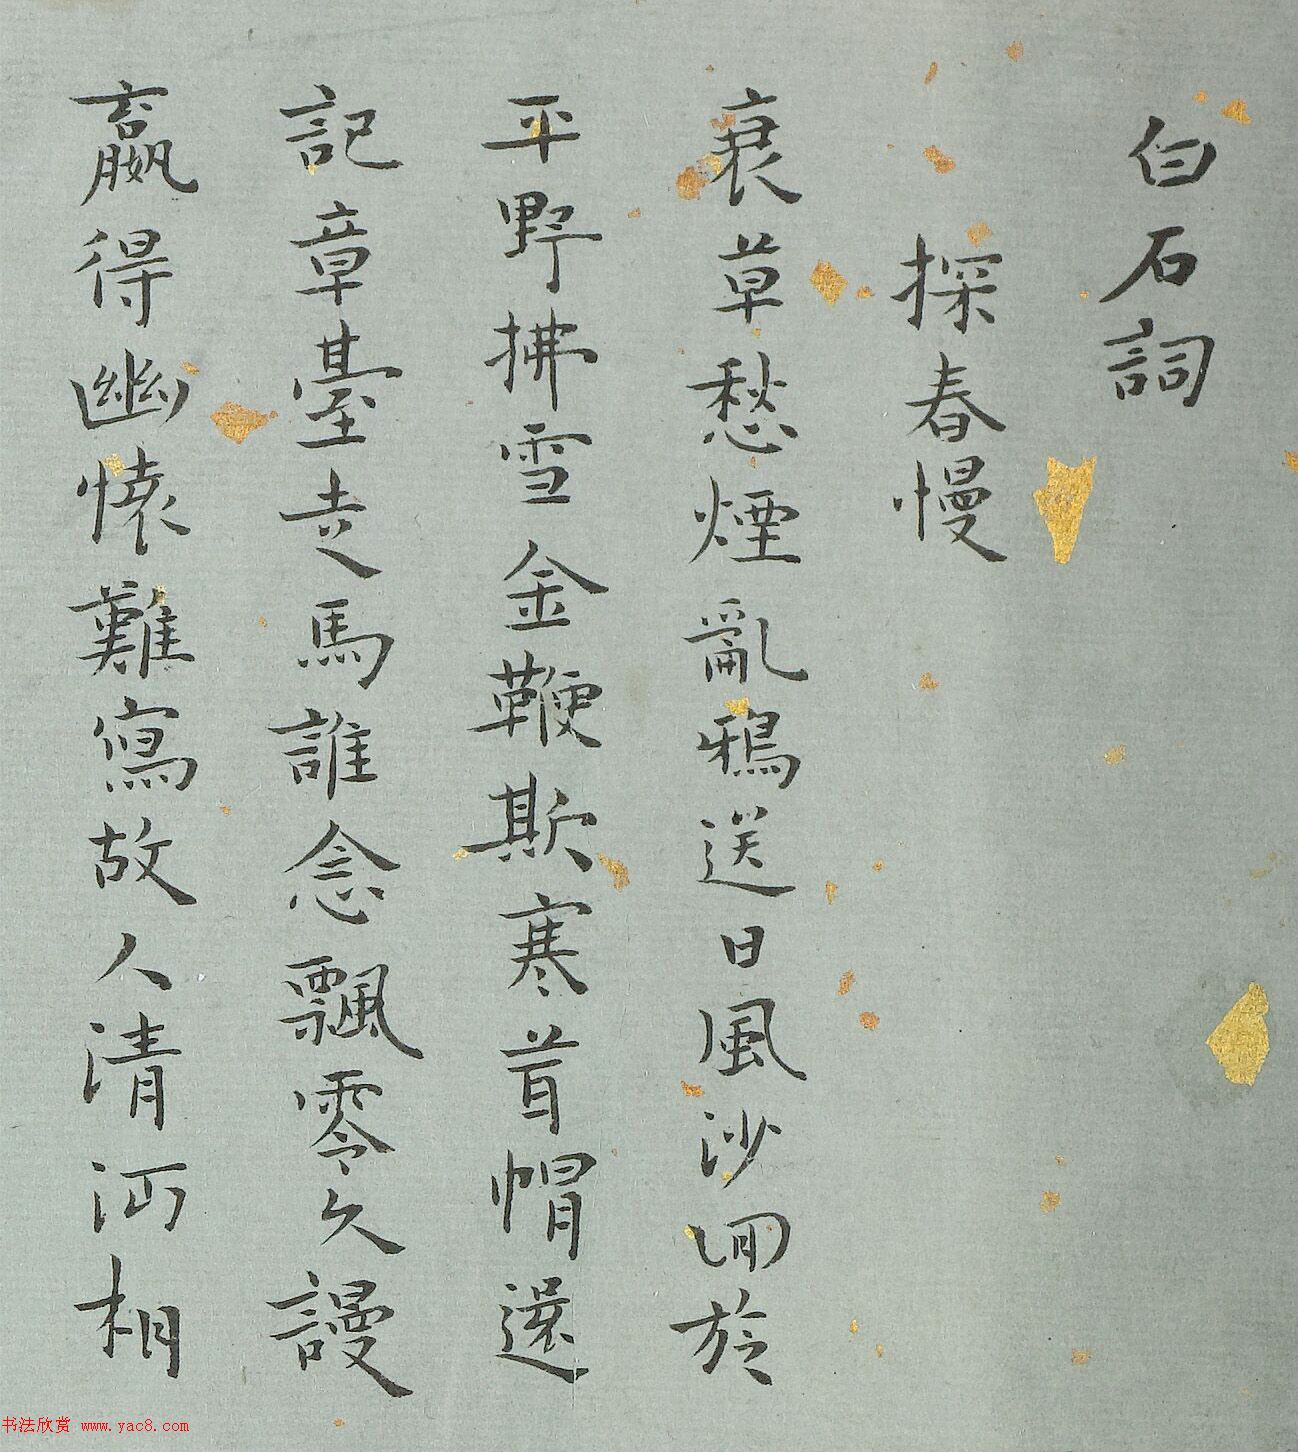 白石詞
探春慢
衰草愁煙亂鴉送日風沙回於
平野拂雪金鞭欺寒茸帽還
記章臺走馬誰念飄零久謾
贏得幽懷難寫故人清沔相
书法欣赏 www.yac8.com